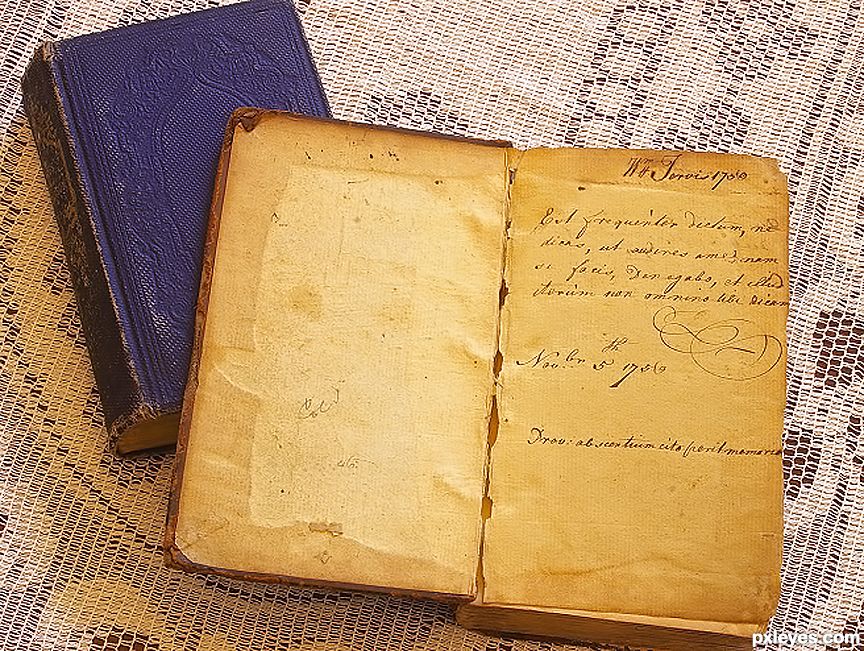 Wm Jervis 1750
Est frequenter dictum, ne
dicas, ut audires
si facis, et illud
iterùm non omnino tibi dicam
Novbr 5th 1750
Prov: absentium cito perit memoria
pxleyes.com